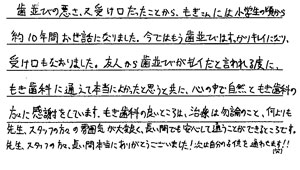 歯並びの悪さ、又受け口だったことから、もぎさんには小学生の頃から
約10年間お世話になりました。今ではもう歯並びはすっかりキレイになり、
受け口もなおりました。友人から歯並びがキレイだと言われる度に、
もぎ歯科に通えて本当によかったと思うと共に、心の中で自然ともぎ歯科の
方々に感謝をしています。もぎ歯科の良いところは、治療は勿論のこと、何よりも
先生、スタッフの方々の雰囲気が大変良く、長い間でも安心して通うことができるところです。
先生、スタッフの方々、長い間本当にありがとうございました!次は自分の子供を通わせます!!